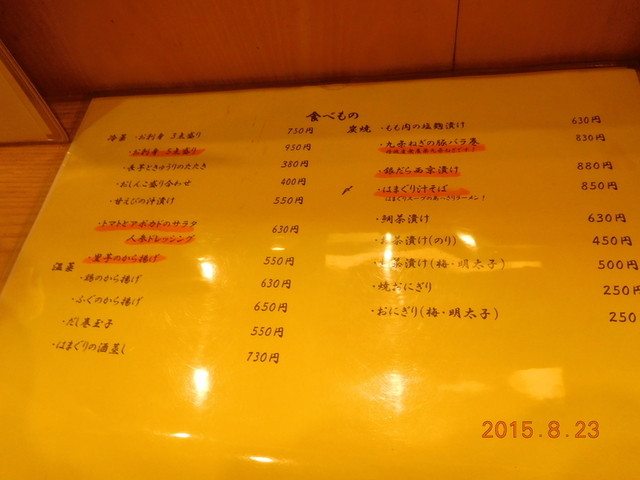 食べもの
冷菜 ・お刺身 3点盛り 750円
・お刺身 5点盛り 950円
・長芋ときゅうりのたたき 380円
・おしんこ盛り合わせ 400円
・甘えびの汁漬け 550円
・トマトとアボカドのサラダ
人参ドレッシング 630円
・里芋のから揚げ 550円
温菜
・鶏のから揚げ 630円
・ふぐのから揚げ 650円
・だし巻玉子 550円
・はまぐりの酒蒸し 730円
炭焼 ・もも肉の塩麹漬け 630円
・九条ねぎの豚バラ巻 830円
・銀だら西京漬け 880円
・はまぐり汁そば 850円
はまぐりスープのあっさりラーメン!
・鯛茶漬け 630円
・お茶漬け(のり) 450円
茶漬け(梅・明太子) 500円
・焼おにぎり 250円
・おにぎり(梅・明太子) 250
2015.8.23